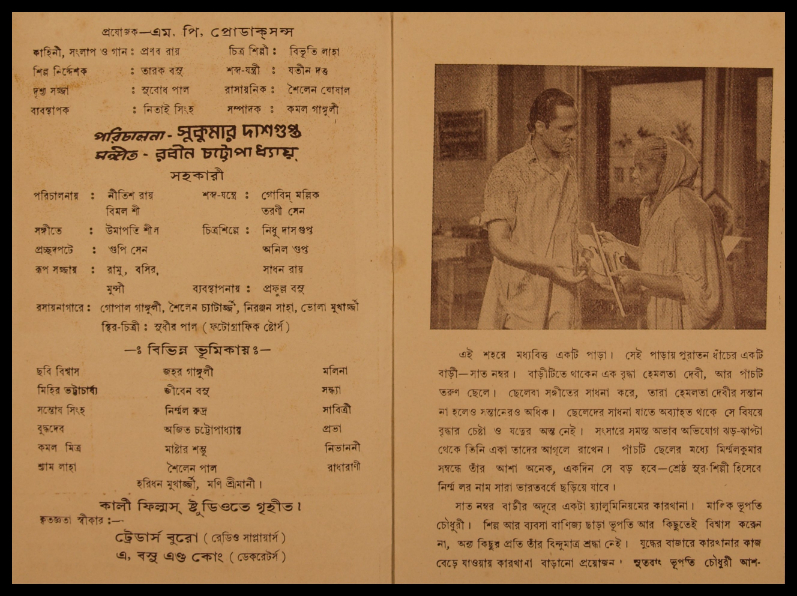 প্রযোজক—এম. পি. প্রোডাক্‌সন্স
কাহিনী, সংলাপ ও গান : প্রণব রায়
চিত্র শিল্পী : বিভূতি লাহা
শিল্প নির্দ্দেশক : তারক বসু
শব্দ-যন্ত্রী : যতীন দত্ত
দৃশ্য সজ্জা : সুবোধ পাল
রাসায়নিক : শৈলেন ঘোষাল
ব্যবস্থাপক : নিতাই সিংহ
সম্পাদক : কমল গাঙ্গুলী
পরিচালনা - সুকুমার দাশগুপ্ত
সঙ্গীত - রবীন চট্টোপাধ্যায়
সহকারী
পরিচালনায় : নীতিশ রায়
বিমল শী
শব্দ-যন্ত্রে : গোবিন্দ মল্লিক
তরণী সেন
সঙ্গীতে : উমাপতি শীল
চিত্রশিল্পে : নিধু দাসগুপ্ত
অনিল গুপ্ত
সাধন রায়
প্রচ্ছদপটে : গুপি সেন
রূপ সজ্জায় : রামু, বসির,
মুন্সী
ব্যবস্থাপনায় : প্রফুল্ল বসু
রসায়নাগারে : গোপাল গাঙ্গুলী, শৈলেন চ্যাটার্জ্জী, নিরঞ্জন সাহা, ভোলা মুখার্জ্জী
স্থির-চিত্রী : সুবীর পাল ( ফটোগ্রাফিক ষ্টোর্স )
—ঃ বিভিন্ন ভূমিকায় ঃ—
ছবি বিশ্বাস জহর গাঙ্গুলী মলিনা
মিহির ভট্টাচার্য্য জীবেন বসু সন্ধ্যা
সন্তোষ সিংহ নির্ম্মল রুদ্র সাবিত্রী
বুদ্ধদেব অজিত চট্টোপাধ্যায় প্রভা
কমল মিত্র মাষ্টার শম্ভু নিভাননী
শ্যাম লাহা শৈলেন পাল রাধারাণী
হরিধন মুখার্জ্জী, মণি শ্রীমানী।
কালী ফিল্মস্ ষ্টুডিওতে গৃহীত।
কৃতজ্ঞতা স্বীকার :—
ট্রেডার্স বুরো ( রেডিও সাপ্লায়ার্স )
এ, বসু এণ্ড কোং ( ডেকরেটর্স )
এই শহরে মধ্যবিত্ত একটি পাড়া। সেই পাড়ায় পুরাতন ধাঁচের একটি
বাড়ী—সাত নম্বর। বাড়ীটিতে থাকেন এক বৃদ্ধা হেমলতা দেবী, আর পাঁচটি
তরুণ ছেলে। ছেলেরা সঙ্গীতের সাধনা করে, তারা হেমলতা দেবীর সন্তান
না হলেও সন্তানেরও অধিক। ছেলেদের সাধনা যাতে অব্যাহত থাকে সে বিষয়ে
বৃদ্ধার চেষ্টা ও যত্নের অন্ত নেই। সংসারে সমস্ত অভাব অভিযোগ ঝড়-ঝাপ্টা
থেকে তিনি একা তাদের আগ্‌লে রাখেন। পাঁচটি ছেলের মধ্যে নির্ম্মলকুমার
সম্বন্ধে তাঁর আশা অনেক, একদিন সে বড় হবে—শ্রেষ্ঠ সুর-শিল্পী হিসেবে
নির্ম্মলের নাম সারা ভারতবর্ষে ছড়িয়ে যাবে।
সাত নম্বর বাড়ীর অদূরে একটা য়্যালুমিনিয়মের কারখানা। মালিক ভূপতি
চৌধুরী। শিল্প আর ব্যবসা বাণিজ্য ছাড়া ভূপতি আর কিছুতেই বিশ্বাস করেন
না, অন্য কিছুর প্রতি তাঁর বিন্দুমাত্র শ্রদ্ধা নেই। যুদ্ধের বাজারে কারখানার কাজ
বেড়ে যাওয়ায় কারখানা বাড়ানো প্রয়োজন। সুতরাং ভূপতি চৌধুরী আশ-